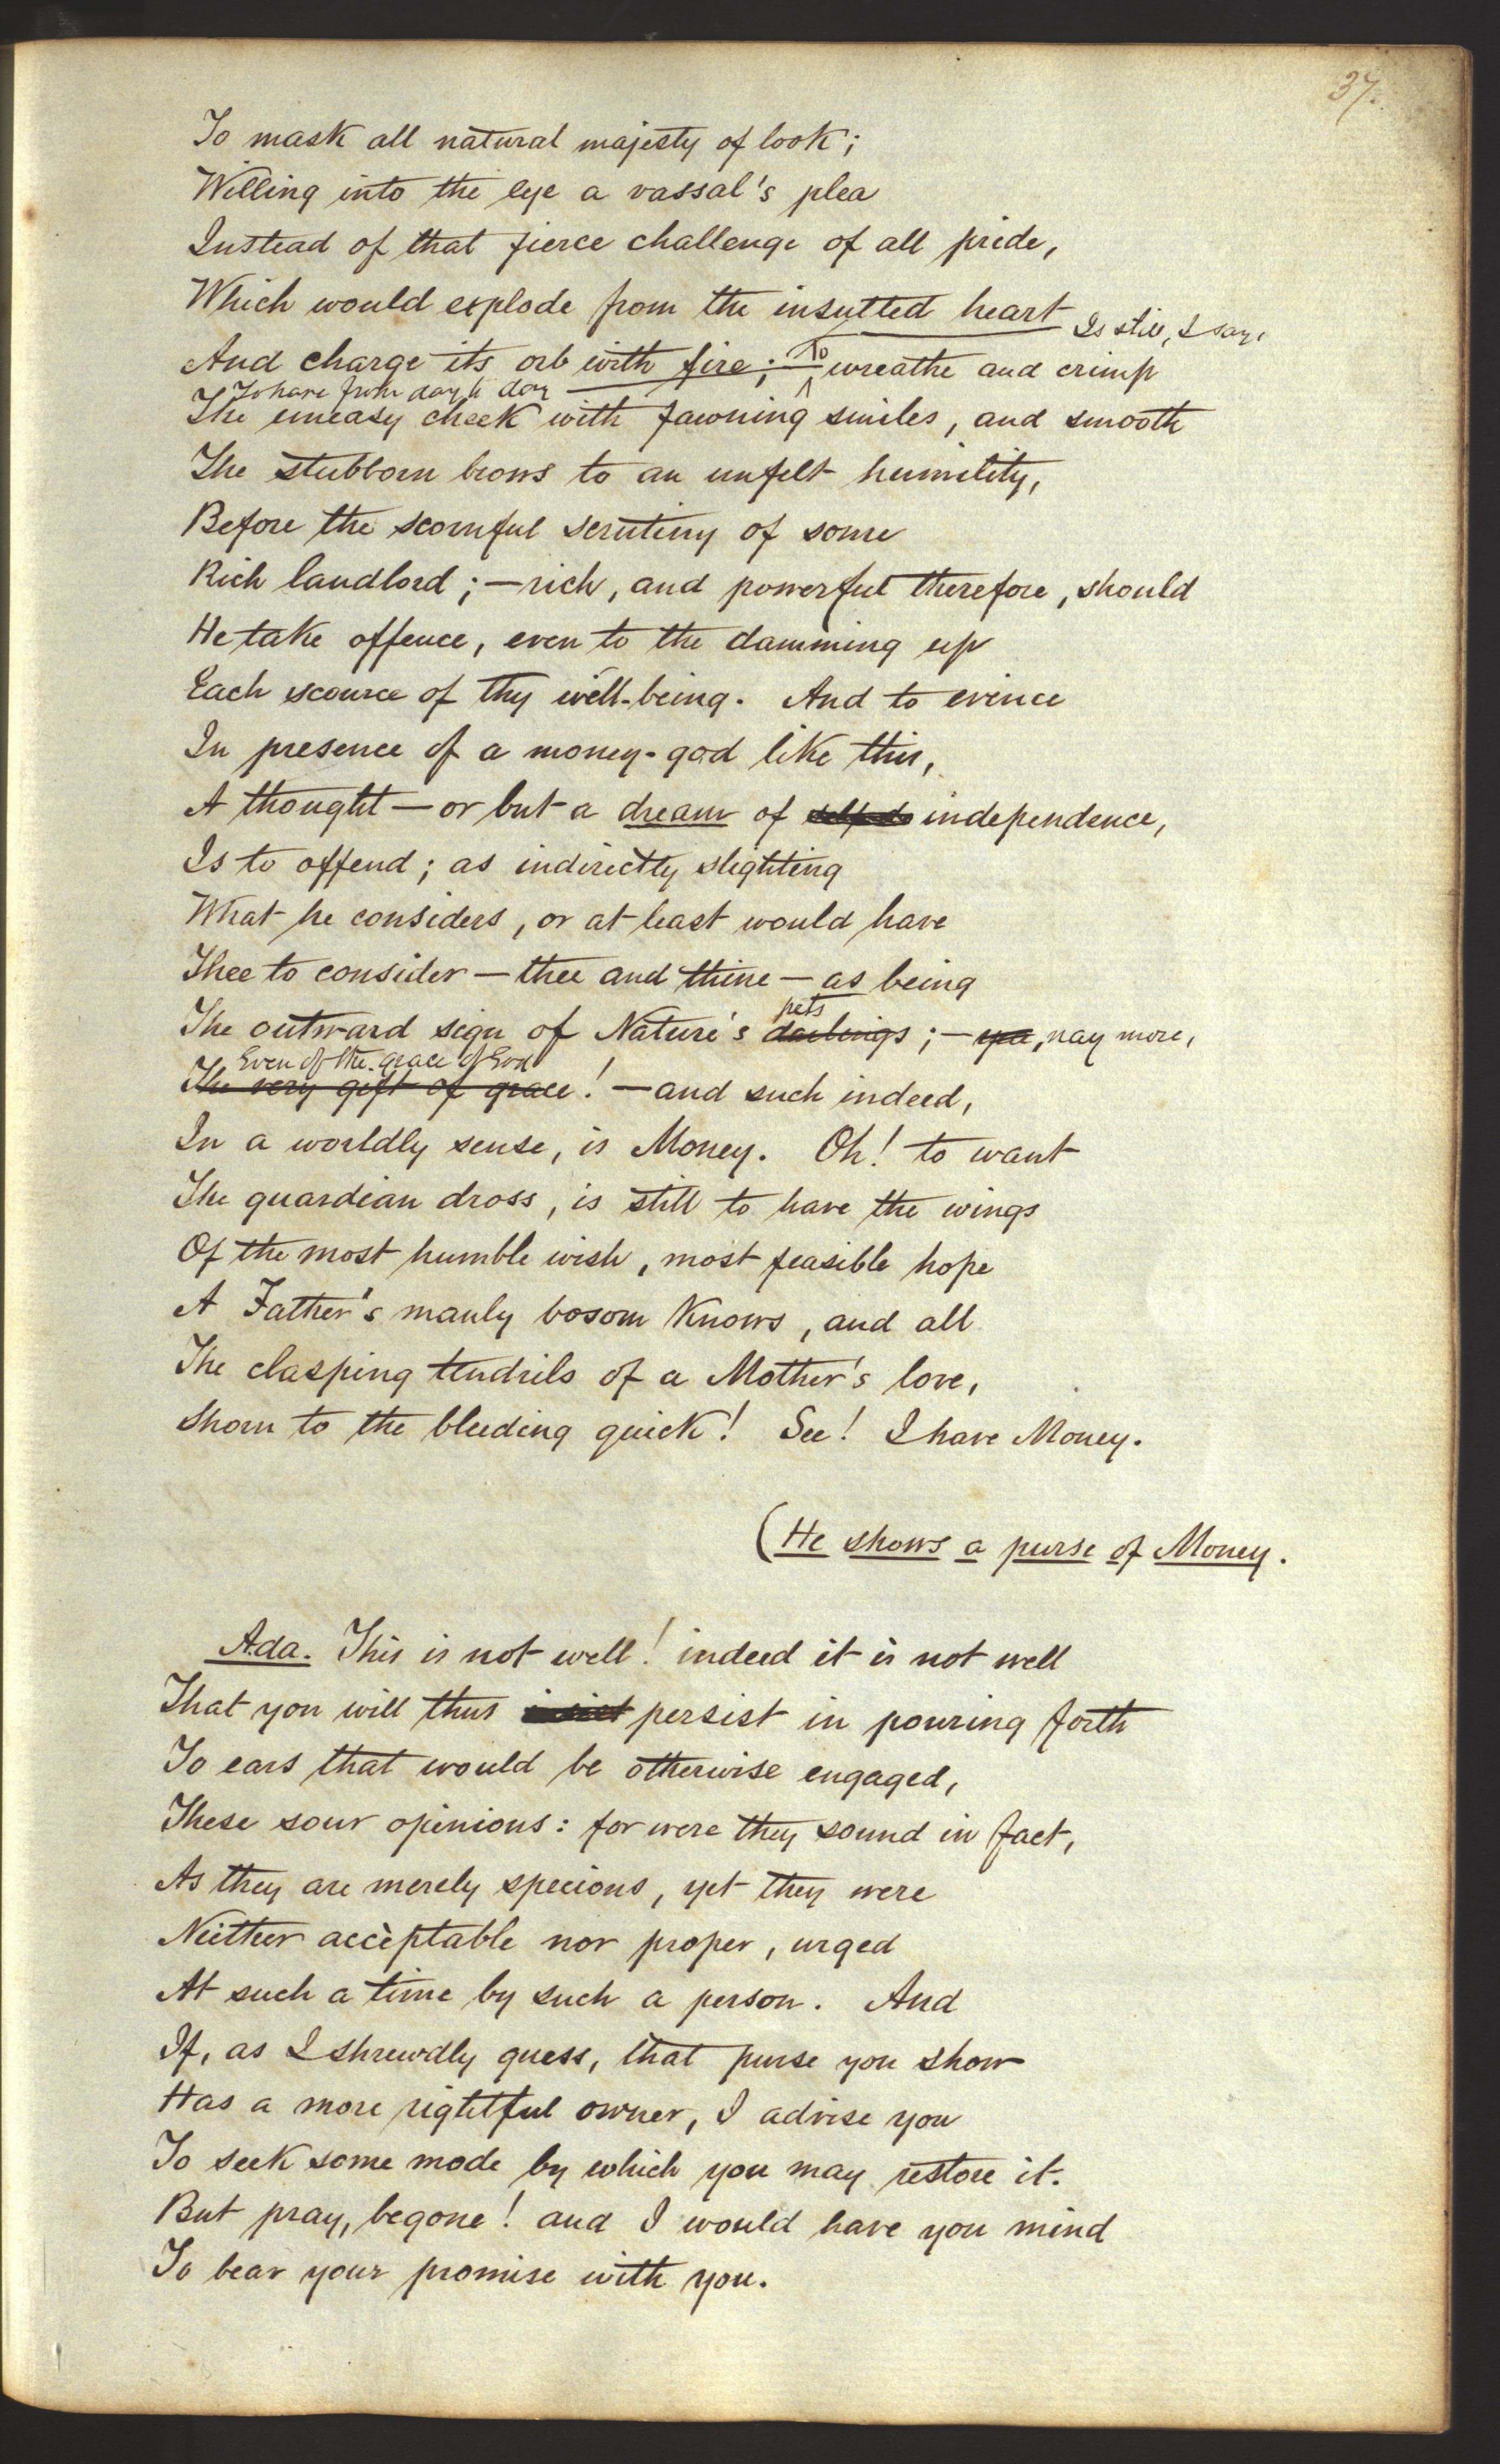 37.
To mask all natural majesty of look;
Willing into the eye a vassal's plea
Instead of that fierce challenge of all pride,
Which would explode from the insulted heart
Is still, I say,
And charge its orb with fire; To wreathe and crimp
To have from day to day
The uneasy cheek with fawning smiles, and smooth
The stubborn brows to an unfelt humility,
Before the scornful scrutiny of some
Rich landlord;—rich, and powerful therefore, should
He take offence, even to the damming up
Each scource of thy well-being. And to evince
In presence of a money-god like this,
A thought—or but a dream of independence,
Is to offend; as indirectly slighting
What he considers, or at least would have
Thee to consider—thee and thine—as being
pets
The outward sign of Nature's darlings;—yea, nay more,
Even of the grace of God
The very gift of grace!—and such indeed,
In a worldly sense, is Money. Oh! to want
The guardian dross, is still to have the wings
Of the most humble wish, most feasible hope
A Father's manly bosom knows, and all
The clasping tendrils of a Mother's love,
Shorn to the bleeding quick! See! I have Money.
(He shows a purse of Money.
Ada. This is not well! indeed it is not well
That you will thus insist persist in pouring forth
To ears that would be otherwise engaged,
These sour opinions: for were they sound in fact,
As they are merely specious, yet they were
Neither acceptable nor proper, urged
At such a time by such a person. And
If, as I shrewdly guess, that purse you show
Has a more rightful owner, I advise you
To seek some mode by which you may restore it.
But pray, begone! and I would have you mind
To bear your promise with you.